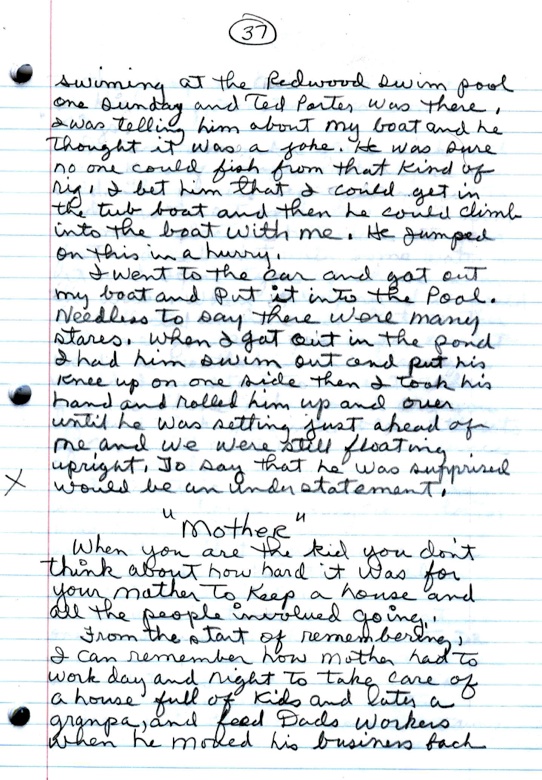 37
swiming at the Redwood swim pool
one Sunday and Ted Porter was there.
I was telling him about my boat and he
thought it was a joke. He was sure
no one could fish from that kind of
rig. I bet him that I could get in
the tub boat and then he could climb
into the boat with me. He jumped
on this in a hurry.
I went to the car and got out
my boat and put it into the Pool.
Needless to say there were many
stares. When I got out in the pond
I had him swim out and put his
knee up on one side then I took his
hand and rolled him up and over
until he was setting just ahead of
me, and we were still floating
upright. To say that he was supprised
X would be an understatement.
"Mother"
When you are the kid you don't
think about how hard it was for
your mother to keep a house and
all the people involved going.
From the start of remembering,
I can remember how mother had to
work day and night to take care of
a house full of kids and later a
granpa, and feed Dads workers
when he moved his business back